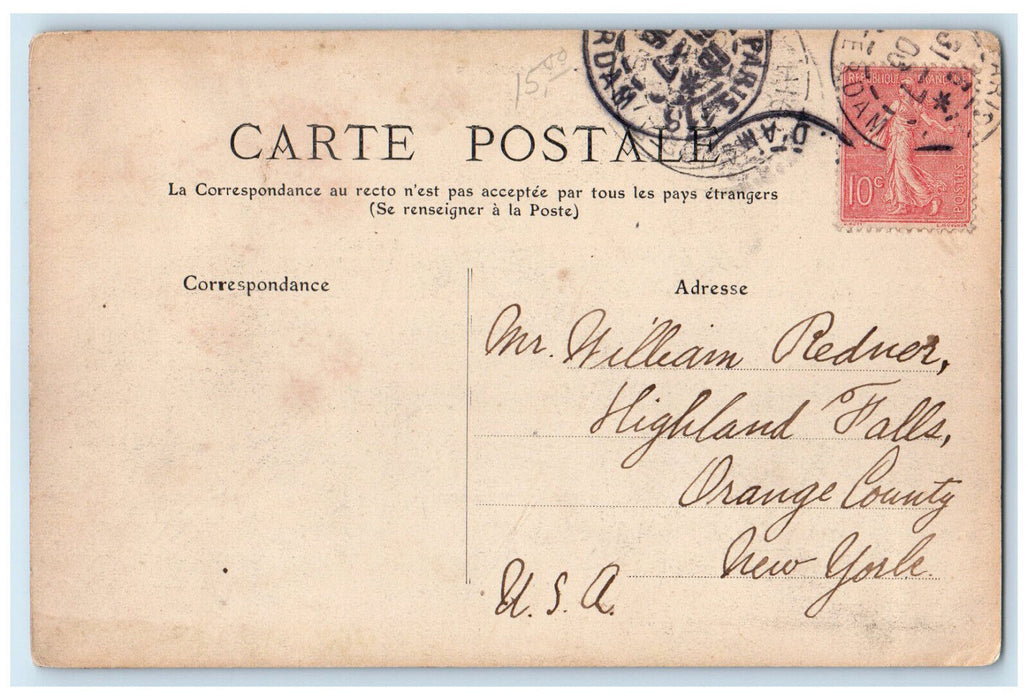 15.00
CARTE POSTALE
La Correspondance au recto n'est pas acceptée par tous les pays étrangers
(Se renseigner à la Poste)
REPUBLIQUE FRANÇAISE
10c
POSTES
PARIS
PARIS
D'AMS
Correspondance
Adresse
Mr. William Redner,
Highland Falls,
Orange County
New York.
U.S.A.